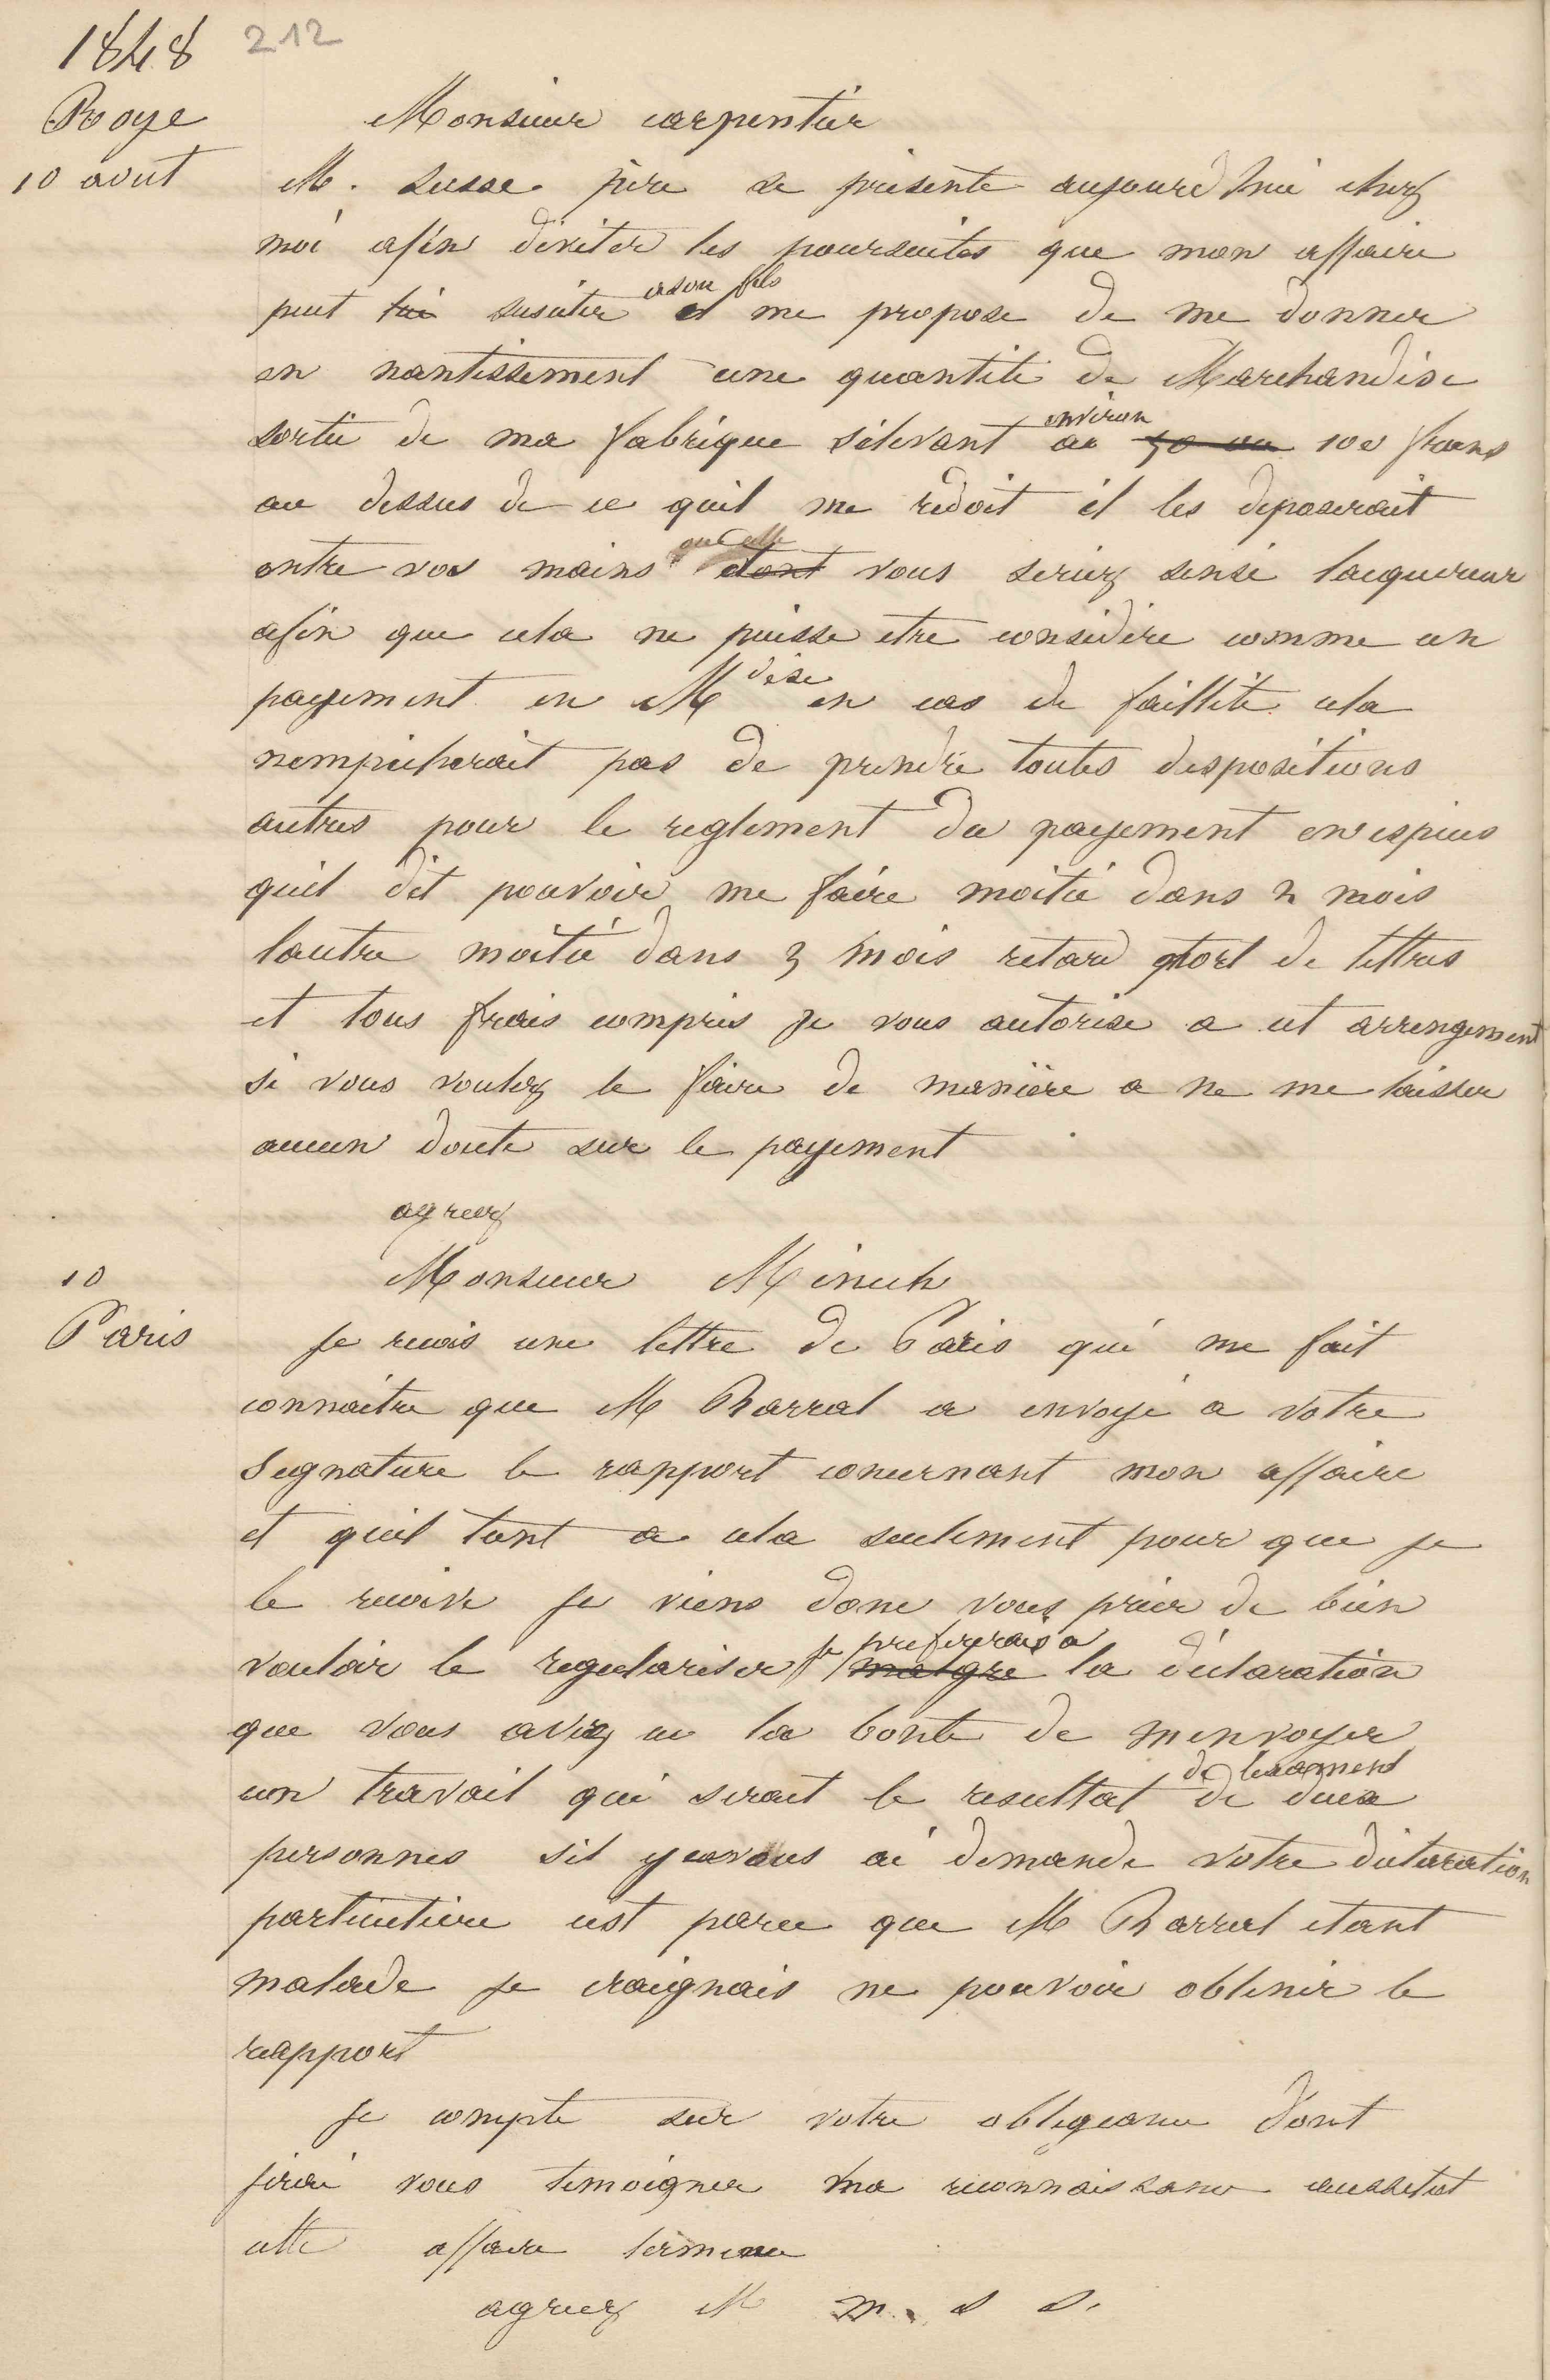 1848 212
Roye
10 aout
Monsieur carpentier
M. Susse père se présente aujourd'hui chez
moi afin d'eviter les poursuites que mon affaire
peut lui susciter a son fils et me propose de me donner
en nantissement une quantité de Marchandise
sortie de ma fabrique s'élevant au environ 50 ou 100 francs
au dessus de ce quil me redoit il les deposerait
entre vos mains dont vous seriez sensé lacquereur
afin que cela ne puisse etre considéré comme un
payement en Mdise en cas de faillite cela
nempecherait pas de prendre toutes dispositions
autres pour le reglement du payement en especes
quil dit pouvoir me faire moitié dans 2 mois
lautre moitié dans 3 mois retard port de lettres
et tous frais compris je vous autorise a cet arrengement
si vous voulez le faire de manière a ne me laisser
aucun doute sur le payement
agreez
10
Paris
Monsieur Minich
Je recois une lettre de Paris qui me fait
connaitre que M Barral a envoyé a votre
segnature le rapport concernant mon affaire
et quil tient a cela seulement pour que je
le recoive je viens donc vous prier de bien
vouloir le regulariser je prefererais a malgre la déclaration
que vous aviez eu la bonté de menvoyer
un travail qui serait le resultat de lexament de deux
personnes si je vous ai demandé votre déclaration
particuliere cest parce que M Barral etant
malade je craignais ne pouvoir obtenir le
rapport
je compte sur votre obligeance dont
jirai vous temoigner ma reconnaissance aussitot
cette affaire terminee
agreez M m. s s.